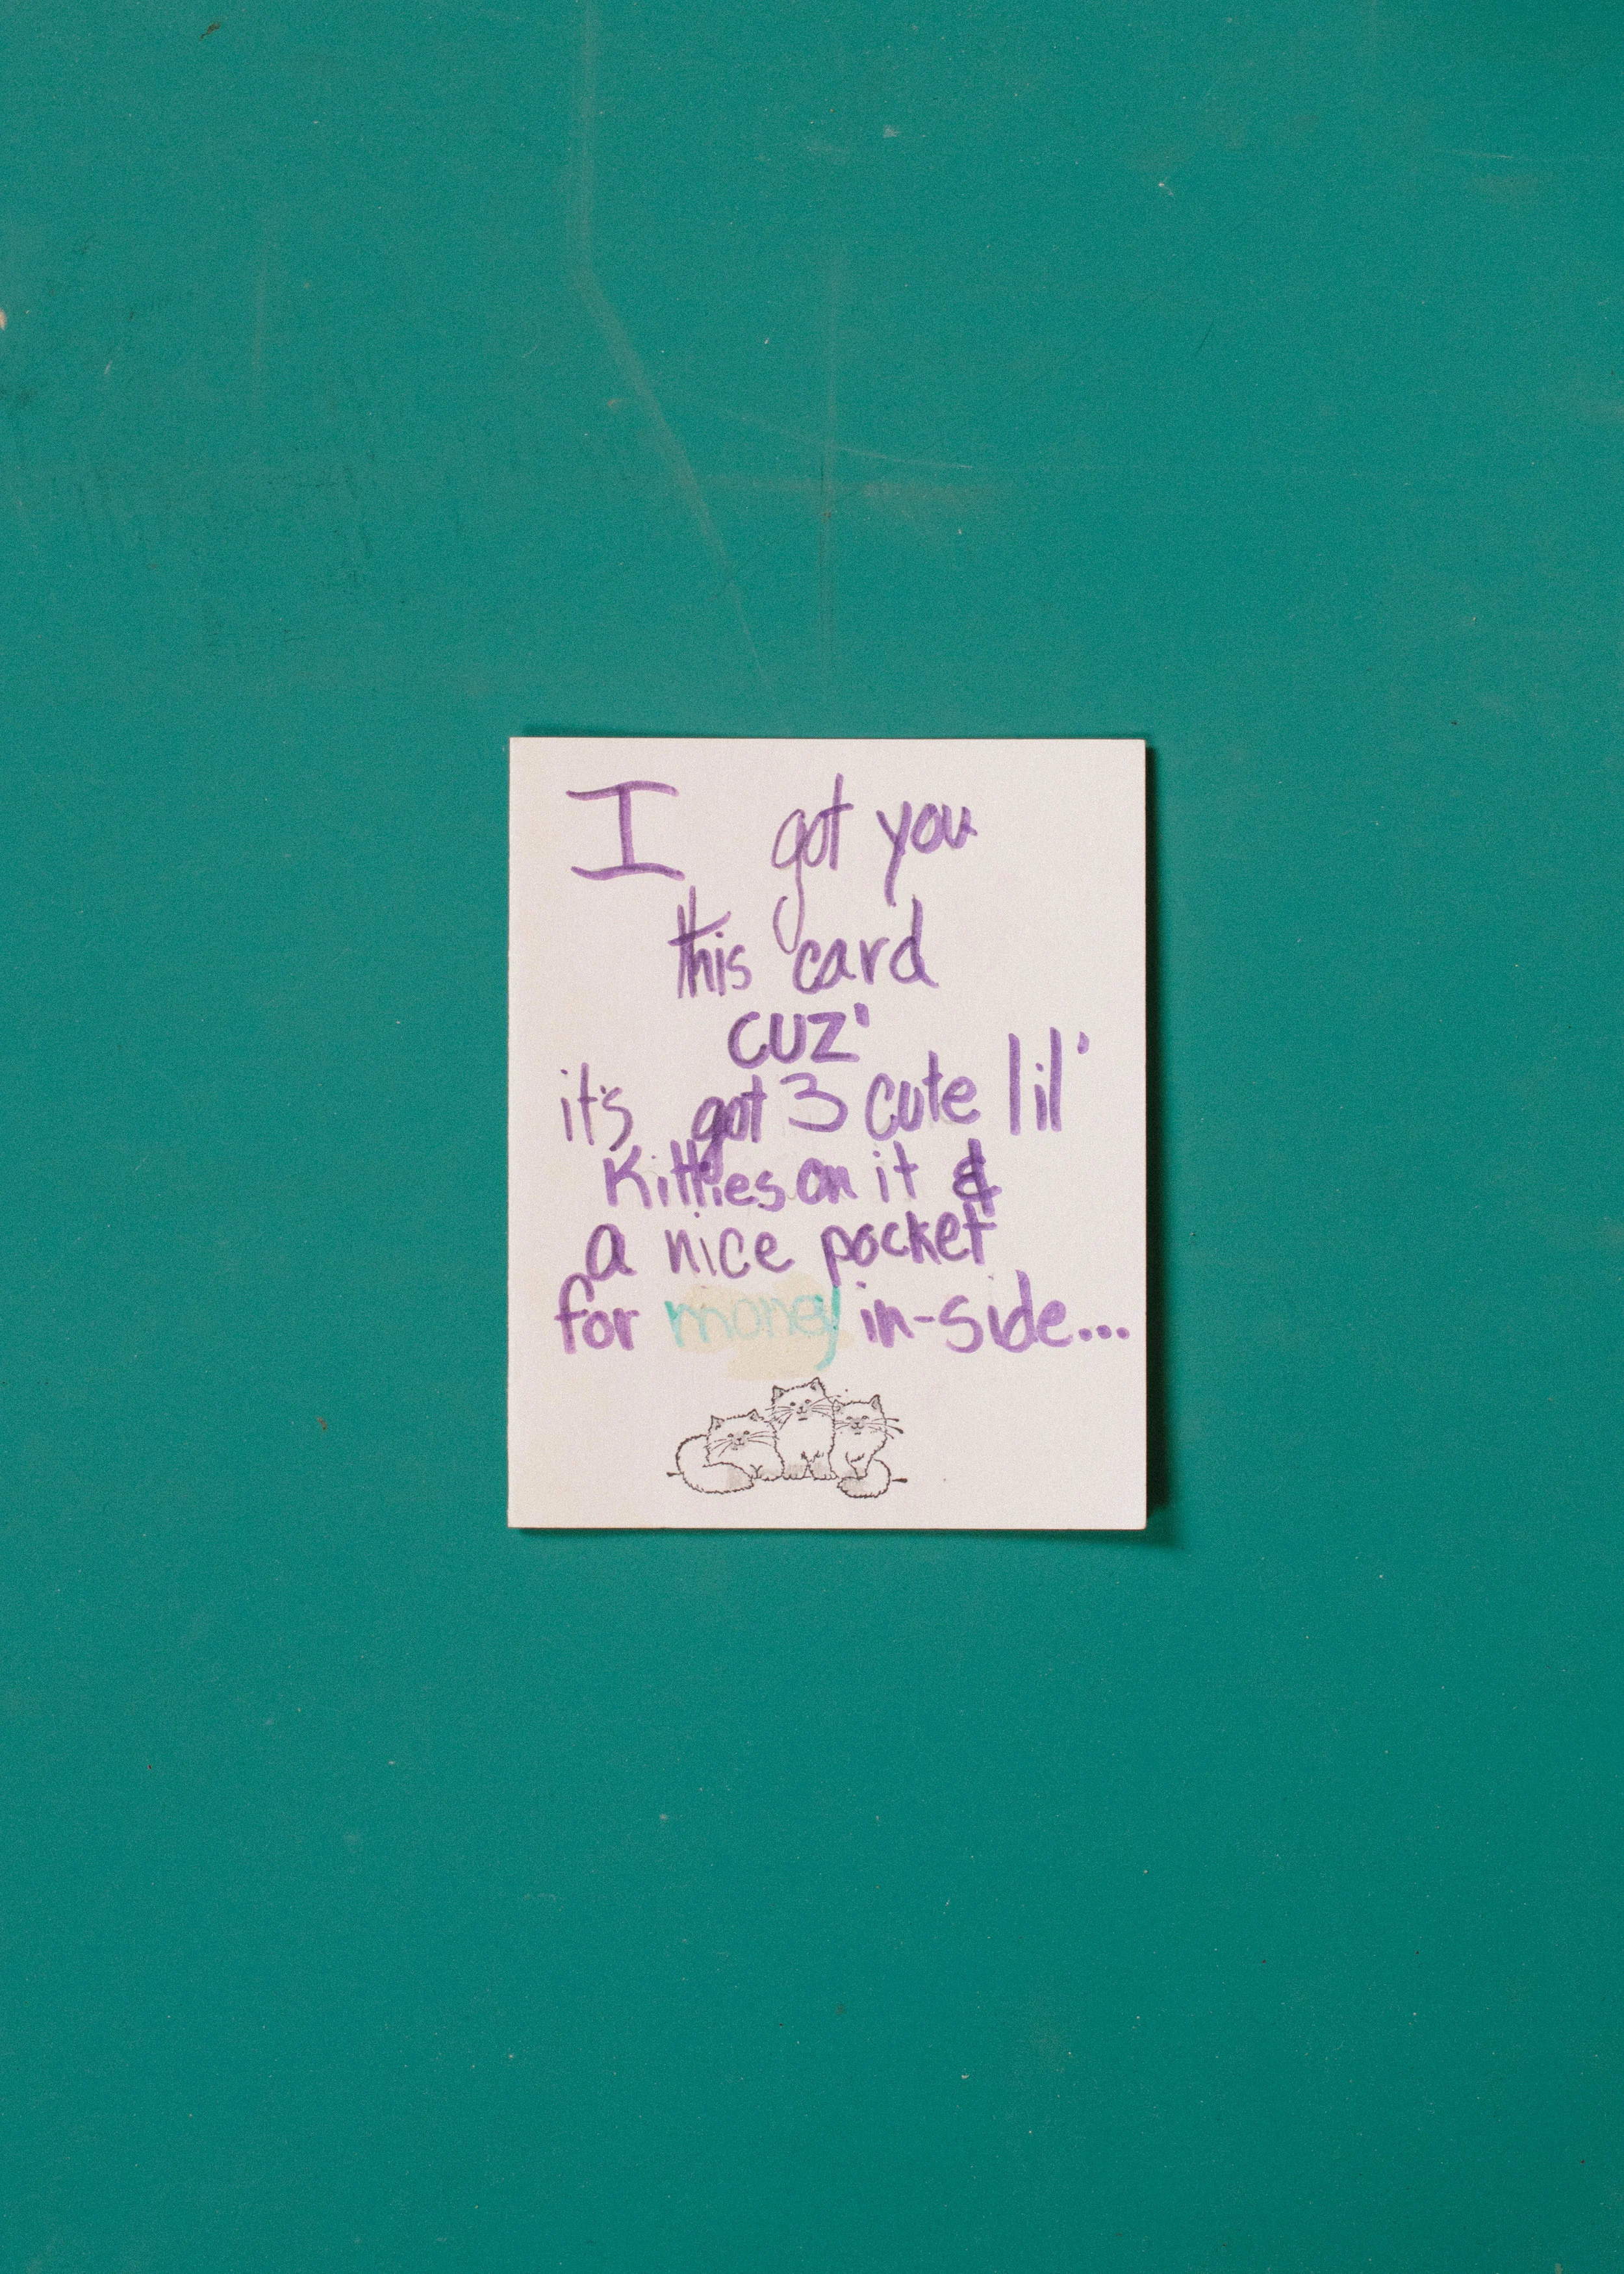 I got you
this card
cuz'
it's got 3 cute lil'
Kitties on it &
a nice pocket
for money in-side...